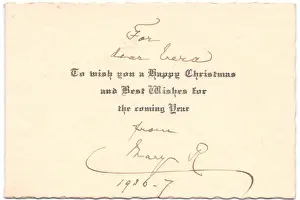 For
dear Vera
To wish you a Happy Christmas
and Best Wishes for
the coming Year
from
Mary R
1936-7